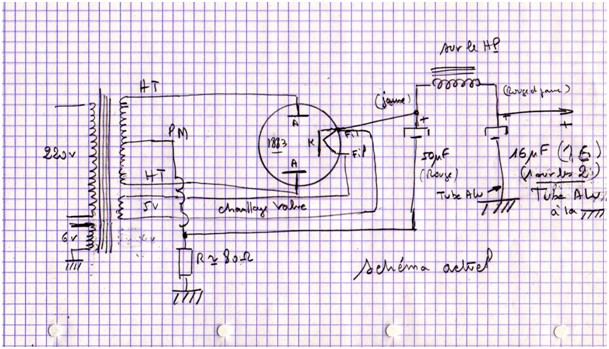 sur le HP
HT
(jaune)
(Rouge et jaune)
+
+
+
PM
A
1883
K
Fil
Fil
220v
50µF
(Rouge)
16µF (
A
HT
Tube Alu
Tube Alu
à la
5V
chauffage valve
6v
R ≃ 80Ω
schéma actuel